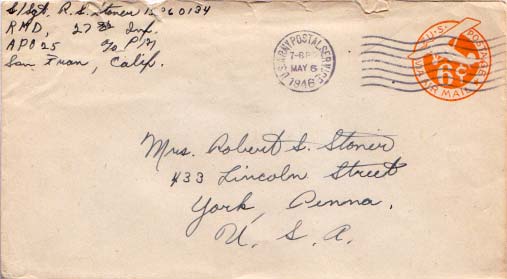 S/Sgt. R. S. Stoner
RMD, 27th Inf.
APO 25 c/o P.M.
San Fran, Calif.
U.S. ARMY POSTAL SERVICE
MAY 6
1946
U.S. POSTAGE
6¢
VIA AIR MAIL
Mrs. Robert S. Stoner
433 Lincoln Street
York, Penna.
U. S. A.